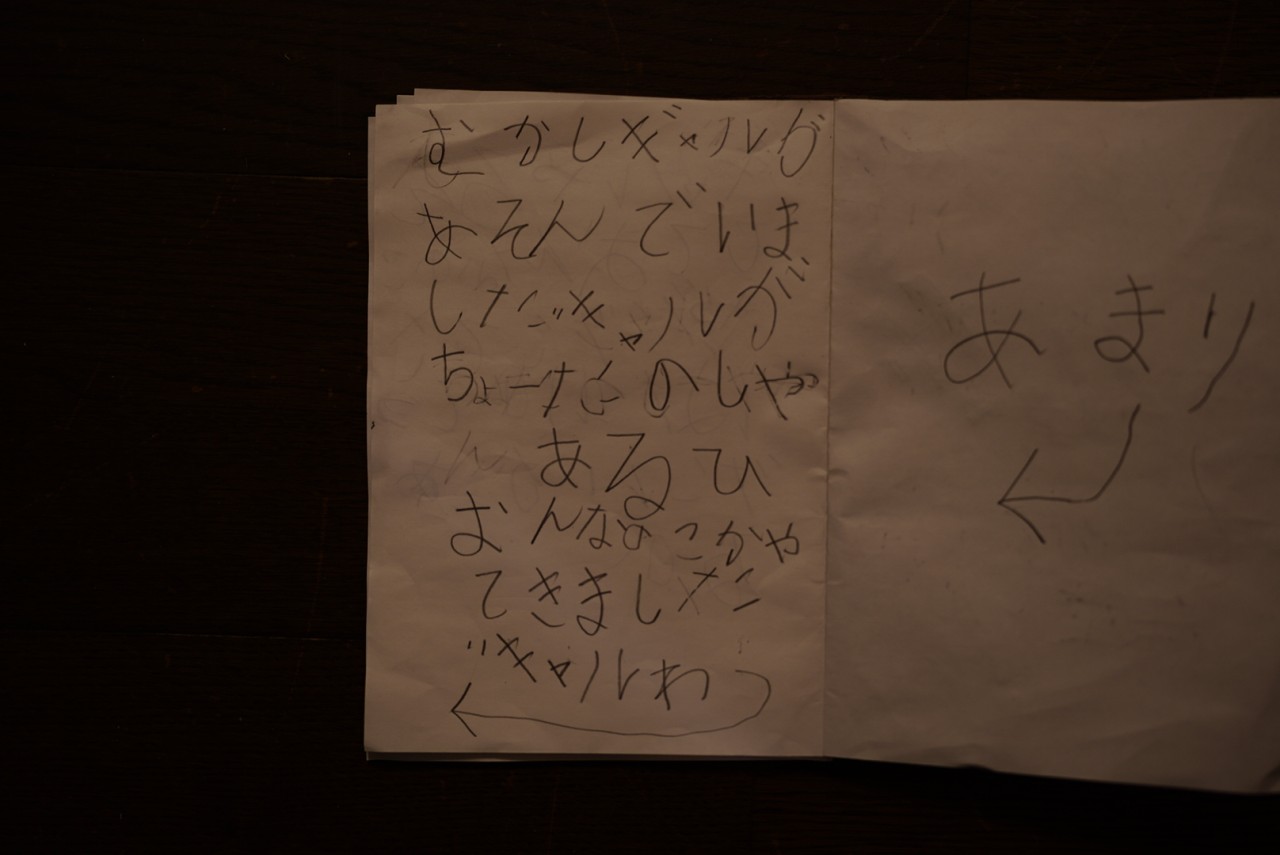 むかしギャルが
あそんでいま
したギャルが
ちょーだのしや
んあるひ
おんなのこがや
てきました
ギャルわ
あまり